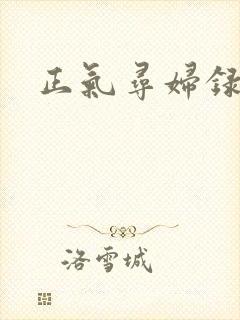 正氣尋婦録
洛雪城